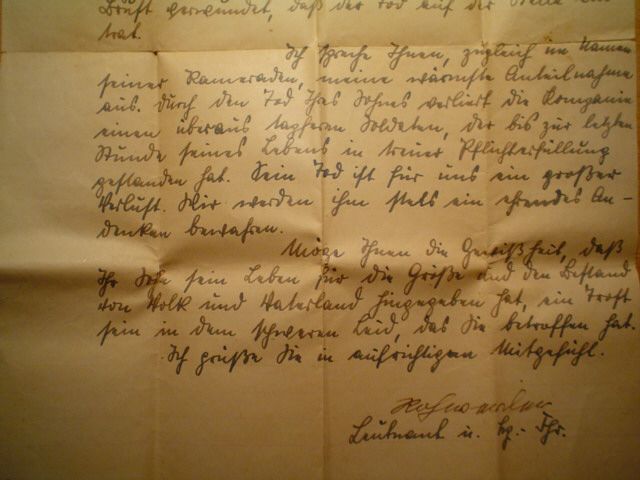 Brust verwundet, daß der Tod auf der Stelle ein-
trat.
Ich spreche Ihnen, zugleich im Namen
seiner Kameraden, meine wärmste Anteilnahme
aus. Durch den Tod Ihres Sohnes verliert die Kompanie
einen überaus tapferen Soldaten, der bis zur letzten
Stunde seines Lebens in treuer Pflichterfüllung
gestanden hat. Sein Tod ist für uns ein großer
Verlust. Wir werden ihm stets ein ehrendes An-
denken bewahren.
Möge Ihnen die Gewißheit, daß
Ihr Sohn sein Leben für die Größe und den Bestand
von Volk und Vaterland hingegeben hat, ein Trost
sein in dem schweren Leid, das Sie betroffen hat.
Ich grüße Sie in aufrichtigem Mitgefühl.
Leutnant u. Kp.-Fhr.